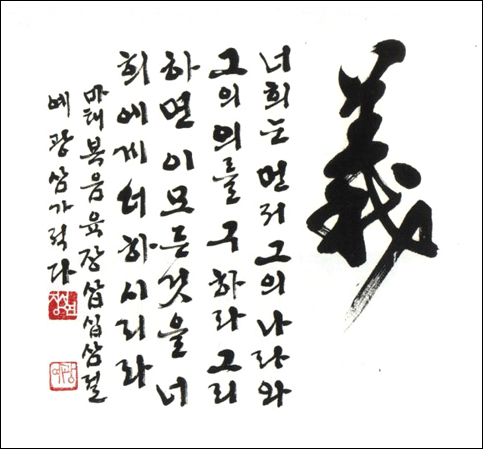 義
너희는 먼저 그의 나라와
그의 의를 구하라 그리
하면 이 모든 것을 너
희에게 더하시리라
마태복음 육장 삼십삼절
예광 삼가 적다
장성연
예광